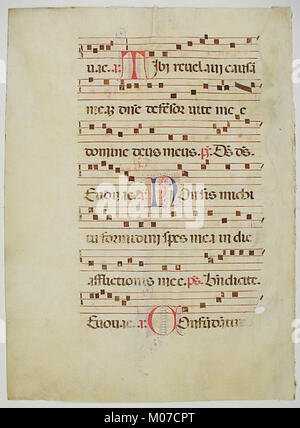 uae. a: Tibi revelavi causam
meam dñe defēsor vite mee
domine deus meus. ps: Ds ds.
Euouae. a: Non sis michi
tu formidini spes mea in die
afflictionis mee. ps: Iudicate.
Euouae. a: Confūdātur
alamy
Image ID: M07CPT
www.alamy.com